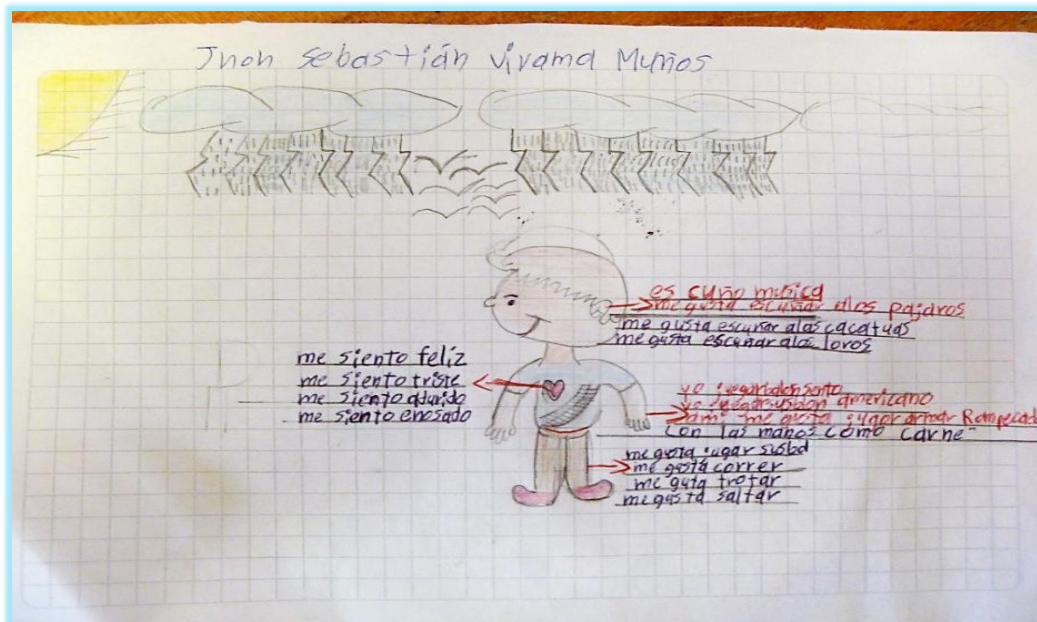 Jhon Sebastián Virama Muños
es cuño musica
me gusta escuñar alos pajaros
me gusta escuñar alas cacatuas
me gusta escuñar alos loros
me siento feliz
me siento triste
me siento adurido
me siento enosado
yo
americano
me gusta jugar armar Rompecad
con las manos como carne
me gusta jugar susbol
me gusta correr
me guta trotar
me gusta saltar